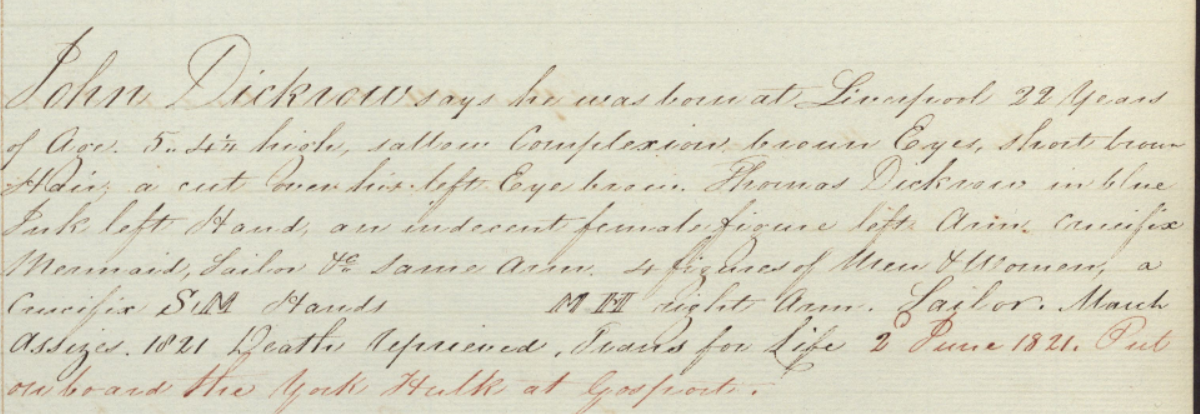 John Dickrow says he was born at Liverpool 22 Years
of Age. 5.. 4¼ high, sallow Complexion brown Eyes, short brown
Hair, a cut over his left Eye brow. Thomas Dickrow in blue
Ink left Hand, an indecent female figure left Arm. Crucifix
Mermaid, Sailor &c same Arm. 4 figures of Men & Women, a
Crucifix S.M Hands M H right Arm. Sailor. March
Assizes. 1821 Death reprieved. Trans for Life 2 June 1821. Put
on board the York Hulk at Gosport.